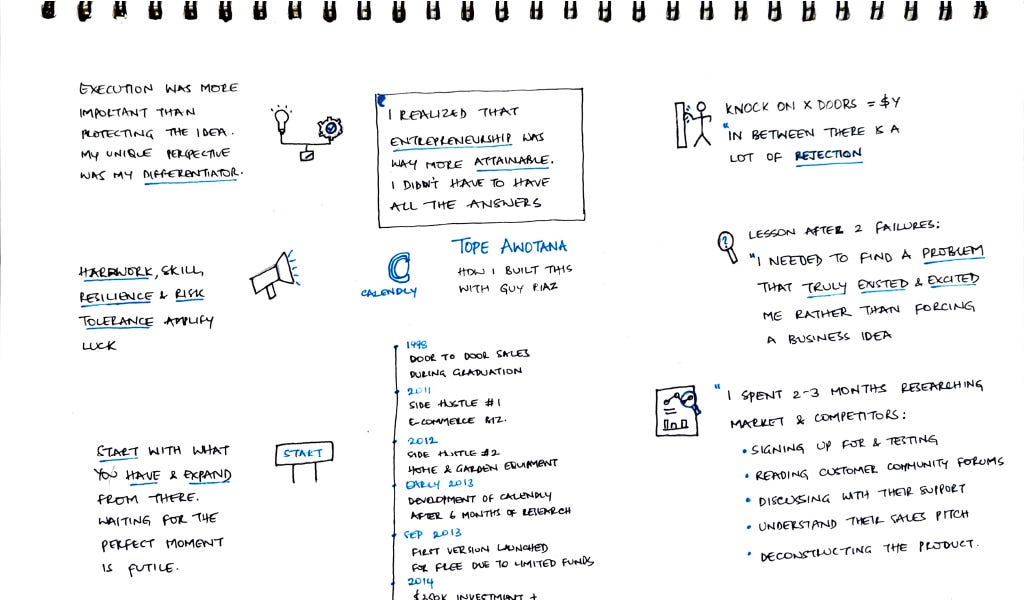 EXECUTION WAS MORE
IMPORTANT THAN
PROTECTING THE IDEA.
MY UNIQUE PERSPECTIVE
WAS MY DIFFERENTIATOR.
HARDWORK, SKILL,
RESILIENCE & RISK
TOLERANCE AMPLIFY
LUCK
START WITH WHAT
YOU HAVE & EXPAND
FROM THERE.
WAITING FOR THE
PERFECT MOMENT
IS FUTILE.
START
"I REALIZED THAT
ENTREPRENEURSHIP WAS
WAY MORE ATTAINABLE.
I DIDN'T HAVE TO HAVE
ALL THE ANSWERS
C
CALENDLY
TOPE AWOTANA
HOW I BUILT THIS
WITH GUY RIAZ
1998
DOOR TO DOOR SALES
DURING GRADUATION
2011
SIDE HUSTLE #1
E-COMMERCE BIZ.
2012
SIDE HUSTLE #2
HOME & GARDEN EQUIPMENT
EARLY 2013
DEVELOPMENT OF CALENDLY
AFTER 6 MONTHS OF RESEARCH
SEP 2013
FIRST VERSION LAUNCHED
FOR FREE DUE TO LIMITED FUNDS
2014
$200K INVESTMENT +
KNOCK ON X DOORS = $Y
"IN BETWEEN THERE IS A
LOT OF REJECTION
?
LESSON AFTER 2 FAILURES:
"I NEEDED TO FIND A PROBLEM
THAT TRULY EXISTED & EXCITED
ME RATHER THAN FORCING
A BUSINESS IDEA
"I SPENT 2-3 MONTHS RESEARCHING
MARKET & COMPETITORS:
• SIGNING UP FOR & TESTING
• READING CUSTOMER COMMUNITY FORUMS
• DISCUSSING WITH THEIR SUPPORT
• UNDERSTAND THEIR SALES PITCH
• DECONSTRUCTING THE PRODUCT.